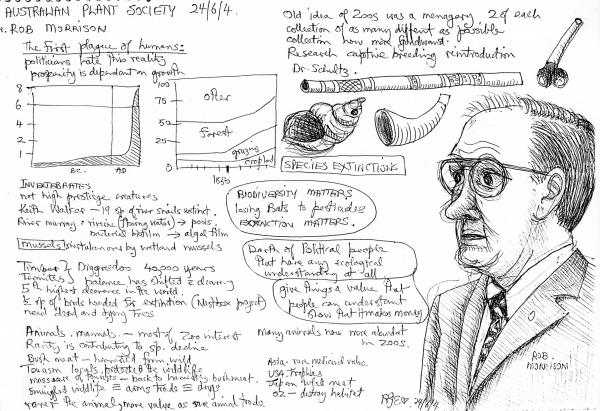 AUSTRALIAN PLANT SOCIETY 24/6/4.
ROB MORRISON
The First plague of humans:
politicians hate this reality
prosperity is dependant on growth
8
6
4
2
1
BC.
AD
100
75
50
25
0
other
forest
grazing
cropland
1850
Old idea of zoos was a menagery 2 of each
collection of as many different as possible
collection now more
Research captive breeding reintroduction
Dr. Schultz.
SPECIES EXTINCTIONS
INVERTEBRATES
not high prestige creatures
Keith Walker - 19 sp of river snails extinct.
River murray → pools
bacterial biofilm → algal film
mussels mistaken over by wetland mussels
BIODIVERSITY MATTERS
losing Bats to pesticides
EXTINCTION MATTERS.
Dearth of Political people
that have any ecological
understanding at all
give things a value that
people can understand
show that it makes money
Timber & Diggredos 40,000 years
Termites balance has shifted clearing
5th highest clearance in the world.
⅓ sp of birds headed for extinction (Nestbox project)
need dead and dying trees
Animals. mammals. - most of zoo interest
Rarity is contributing to sp. decline
Bush meat - harvested from wild
Tourism locals protected the wildlife
massacre of tourists - back to harvesting bushmeat.
smuggled wildlife ≡ arms trade ≡ drugs
rarer the animal, more value as animal trade
many animals now more abundant
in zoos.
Asia - rare medicinal value
USA trophies
Japan wild meat
OZ - destroy habitat
ROB.
MORRISON
24/6/4